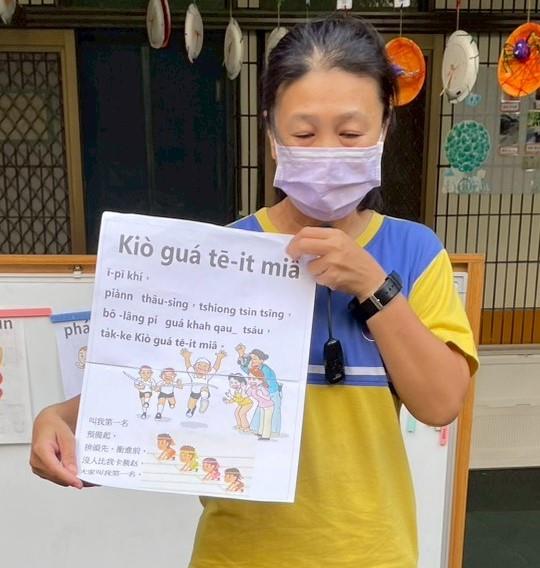 Kiò guá tē-it miâ
ī-pī khí，
piànn thâu-sîng，tshiong tsìn tsîng，
bô -lâng pí guá khah qau_ tsáu，
ta̍k-ke Kiò guá tē-it miâ。
叫我第一名
預備起，
拚頭先，衝進前，
沒人比我卡猴赵，
大家叫我第一名。
phá